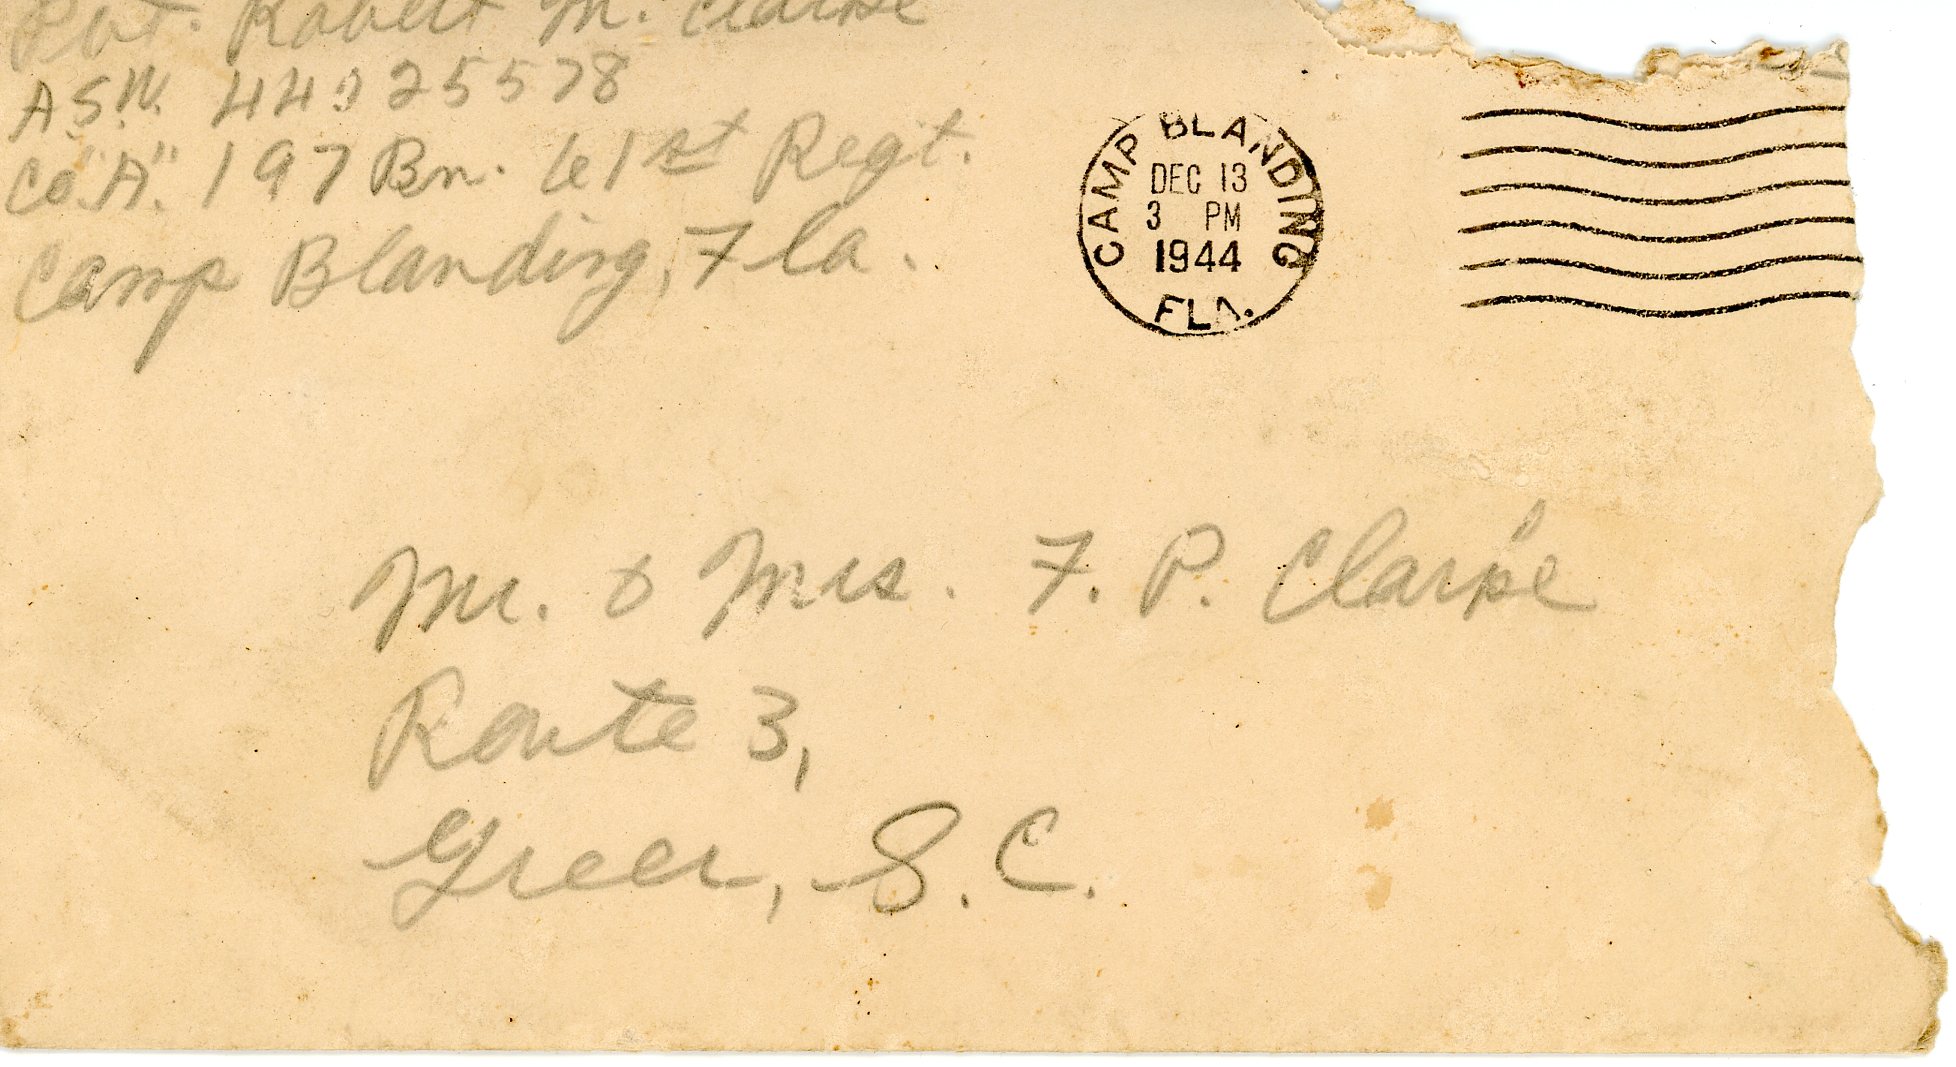 Pvt. Robert M. Clarke
A.S.N. 44025578
Co. "A" 197 Bn. 61st Regt.
Camp Blanding, Fla.
CAMP BLANDING
DEC 13
3 PM
1944
FLA.
Mr. & Mrs. F. P. Clarke
Route 3,
Greer, S. C.